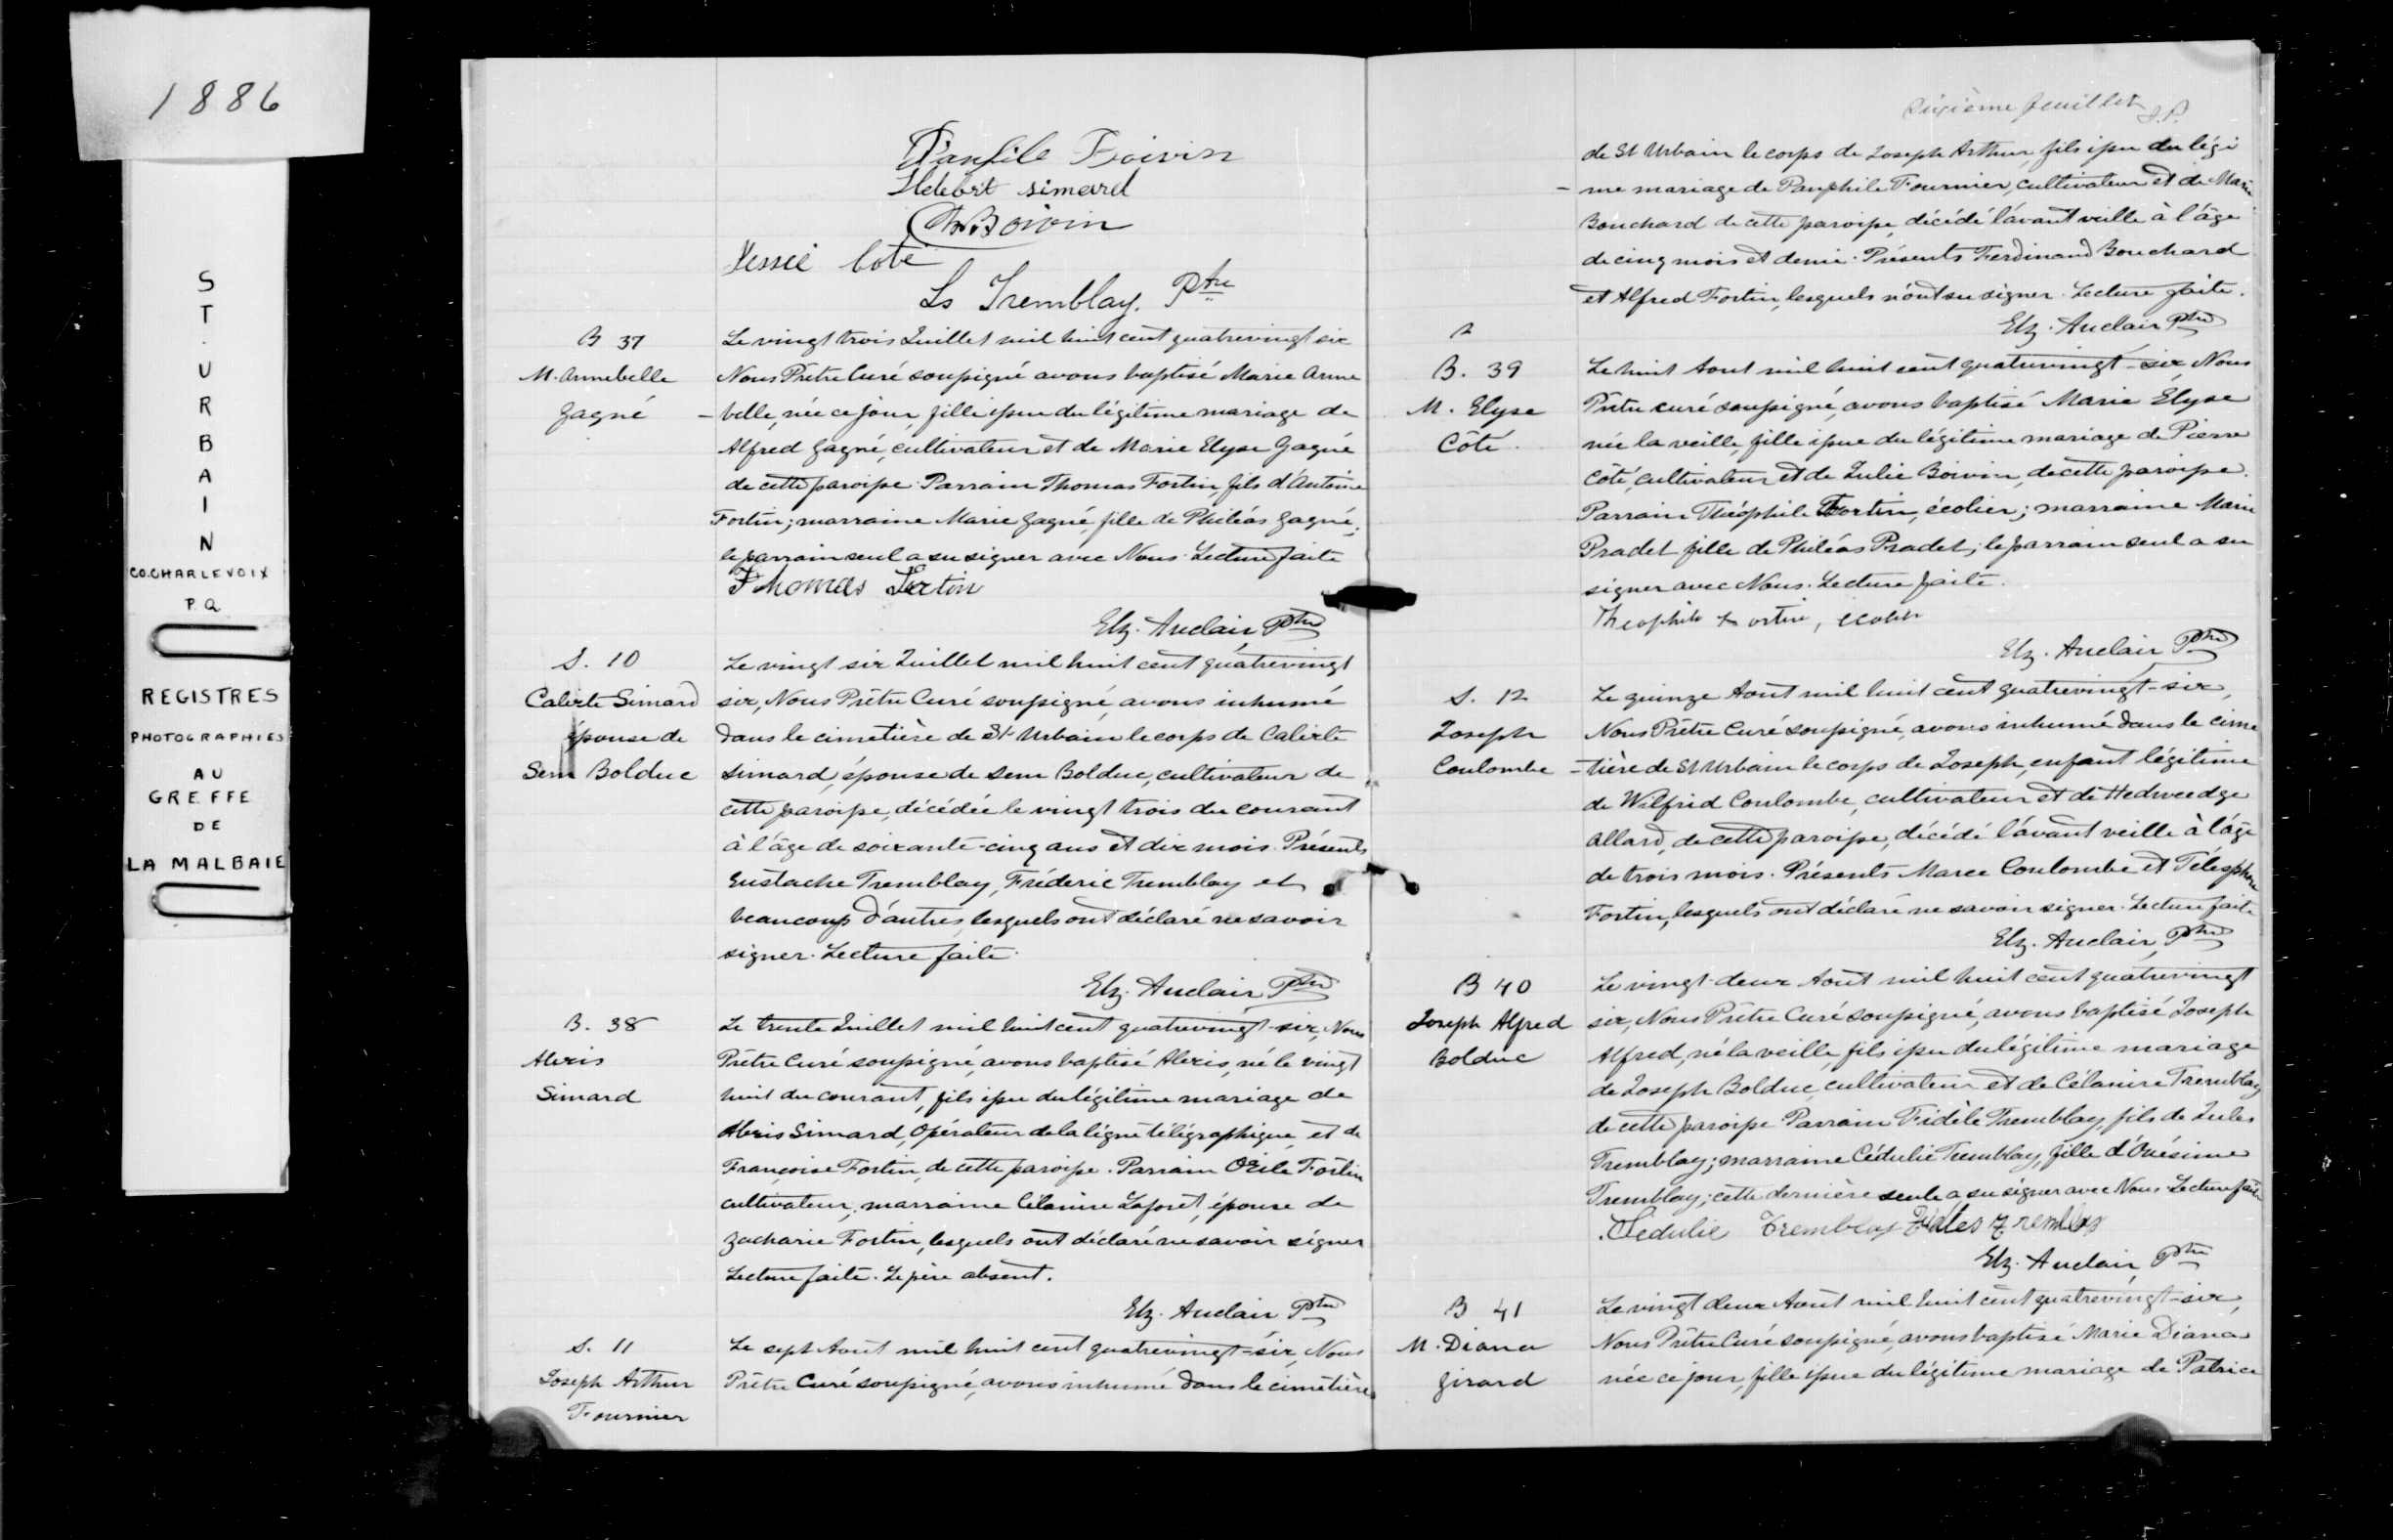 1886
ST. URBAIN
CO. CHARLEVOIX
P.Q
REGISTRES
PHOTOGRAPHIES
AU
GREFFE
DE
LA MALBAIE
Boivin
Simard
Boivin
Côté
Ls Tremblay. Ptre
B 37
M. Annebelle
Gagné
Le vingt trois Juillet mil huit cent quatrevingt six
Nous Prêtre Curé soussigné avons baptisé Marie Anne
-belle, née ce jour, fille issue du légitime mariage de
Alfred Gagné, cultivateur et de Marie Elyse Gagné
de cette paroisse. Parrain Thomas Fortin, fils d'Antoine
Fortin; marraine Marie Gagné, fille de Philéas Gagné;
le parrain seul a su signer avec Nous. Lecture faite
Thomas Fortin
Elz. Auclair Ptre
S. 10
Calixte Simard
épouse de
Sem Bolduc
Le vingt six Juillet mil huit cent quatrevingt
six, Nous Prêtre Curé soussigné, avons inhumé
dans le cimetière de St Urbain le corps de Calixte
Simard, épouse de Sem Bolduc, cultivateur de
cette paroisse, décédée le vingt trois du courant
à l'âge de soixante-cinq ans et dix mois. Présents
Eustache Tremblay, Fréderic Tremblay et
beaucoup d'autres, lesquels ont déclaré ne savoir
signer. Lecture faite.
Elz. Auclair Ptre
B. 38
Alexis
Simard
Le trente Juillet mil huit cent quatrevingt-six, Nous
Prêtre Curé soussigné, avons baptisé Alexis, né le vingt
huit du courant, fils issu du légitime mariage de
Alexis Simard, Opérateur de la ligne télégraphique, et de
Françoise Fortin, de cette paroisse. Parrain Fortin
cultivateur; marraine Célanire Laforet, épouse de
Zacharie Fortin, lesquels ont déclaré ne savoir signer
Lecture faite. Le père absent.
Elz. Auclair Ptre
S. 11
Joseph Arthur
Fournier
Le sept Août mil huit cent quatrevingt-six, Nous
Prêtre Curé soussigné, avons inhumé dans le cimetière
Sixième feuillet
de St Urbain le corps de Joseph Arthur, fils issu du légi
-me mariage de Pamphile Fournier, cultivateur et de Marie
Bouchard de cette paroisse, décédé l'avant veille à l'âge
de cinq mois et demi. Présents Ferdinand Bouchard
et Alfred Fortin, lesquels n'ont su signer. Lecture faite.
Elz. Auclair Ptre
B. 39
M. Elyse
Côté.
Le huit Aout mil huit cent quatrevingt-six Nous
Prêtre curé soussigné, avons baptisé Marie Élyse
née la veille, fille issue du légitime mariage de Pierre
Côté, cultivateur et de Julie Boivin, de cette paroisse.
Parrain Théophile Fortin, écolier; marraine Marie
Pradet fille de Philéas Pradet; le parrain seul a su
signer avec Nous. Lecture faite.
Theophile Fortin, ecolier
Elz. Auclair Ptre
S. 12
Joseph
Coulombe
Le quinze Août mil huit cent quatrevingt-six,
Nous Prêtre Curé soussigné, avons inhumé dans le cime
-tière de St Urbain le corps de Joseph, enfant légitime
de Wilfrid Coulombe, cultivateur et de Hedweedge
Allard, de cette paroisse, décédé l'avant veille à l'âge
de trois mois. Présents Marce Coulombe et Télesphore
Fortin, lesquels ont déclaré ne savoir signer. Lecture faite
Elz. Auclair, Ptre
B 40
Joseph Alfred
Bolduc
Le vingt-deux Août mil huit cent quatrevingt
six, Nous Prêtre Curé soussigné, avons baptisé Joseph
Alfred, né la veille, fils issu du légitime mariage
de Joseph Bolduc, cultivateur et de Célanire Tremblay
de cette paroisse. Parrain Fidèle Tremblay, fils de Jules
Tremblay; marraine Cédulie Tremblay, fille d'Onésime
Tremblay; cette dernière seule a su signer avec Nous. Lecture faite
Cedulie Tremblay Tremblay
Elz. Auclair, Ptre
B 41
M. Diana
Girard
Le vingt deux Août mil huit cent quatrevingt-six,
Nous Prêtre Curé soussigné, avons baptisé Marie Diana
née ce jour, fille issue du légitime mariage de Patrice